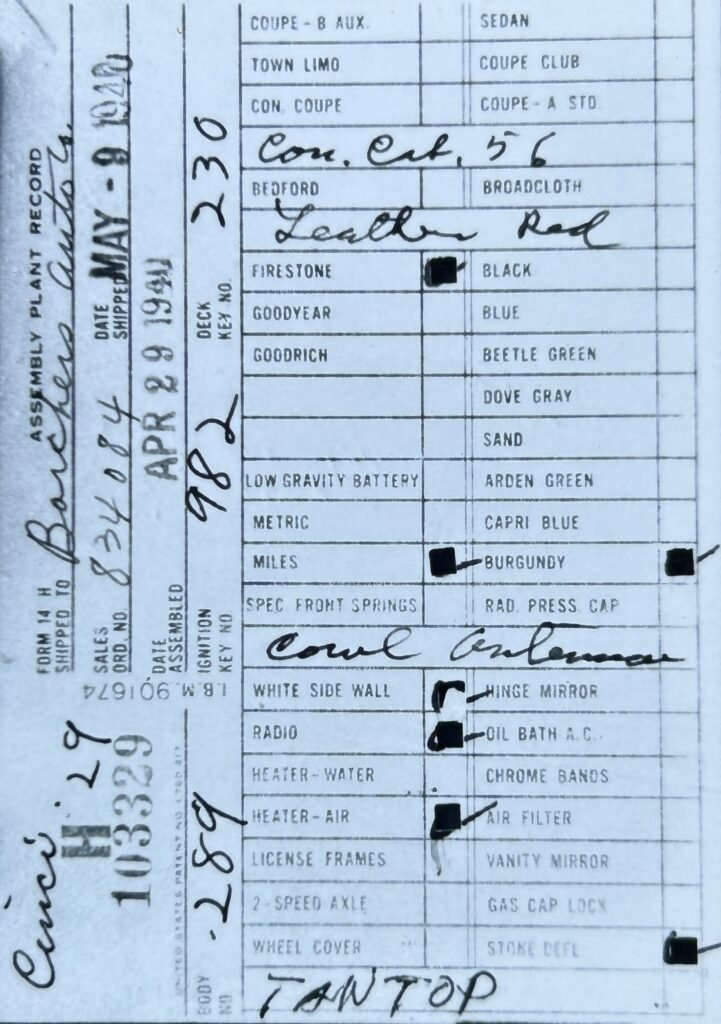 FORM 14 H ASSEMBLY PLANT RECORD
SHIPPED TO Borchers Auto Co.
SALES ORD. NO. 834084 DATE SHIPPED MAY - 9 1940
DATE ASSEMBLED APR 29 1940
IGNITION KEY NO 982 DECK KEY NO. 230
I.B.M. 901674
Cinci '29
H
103329
UNITED STATES PATENT NO
BODY NO 289
COUPE - B AUX. SEDAN
TOWN LIMO COUPE CLUB
CON. COUPE COUPE - A STD
Con. Cab. 56
BEDFORD BROADCLOTH
Leather Red
FIRESTONE BLACK
GOODYEAR BLUE
GOODRICH BEETLE GREEN
DOVE GRAY
SAND
LOW GRAVITY BATTERY ARDEN GREEN
METRIC CAPRI BLUE
MILES BURGUNDY
SPEC FRONT SPRINGS RAD. PRESS. CAP
Cowl Antennae
WHITE SIDE WALL HINGE MIRROR
RADIO OIL BATH A.C.
HEATER-WATER CHROME BANDS
HEATER-AIR AIR FILTER
LICENSE FRAMES VANITY MIRROR
2-SPEED AXLE GAS CAP LOCK
WHEEL COVER STONE DEFL
TAN TOP